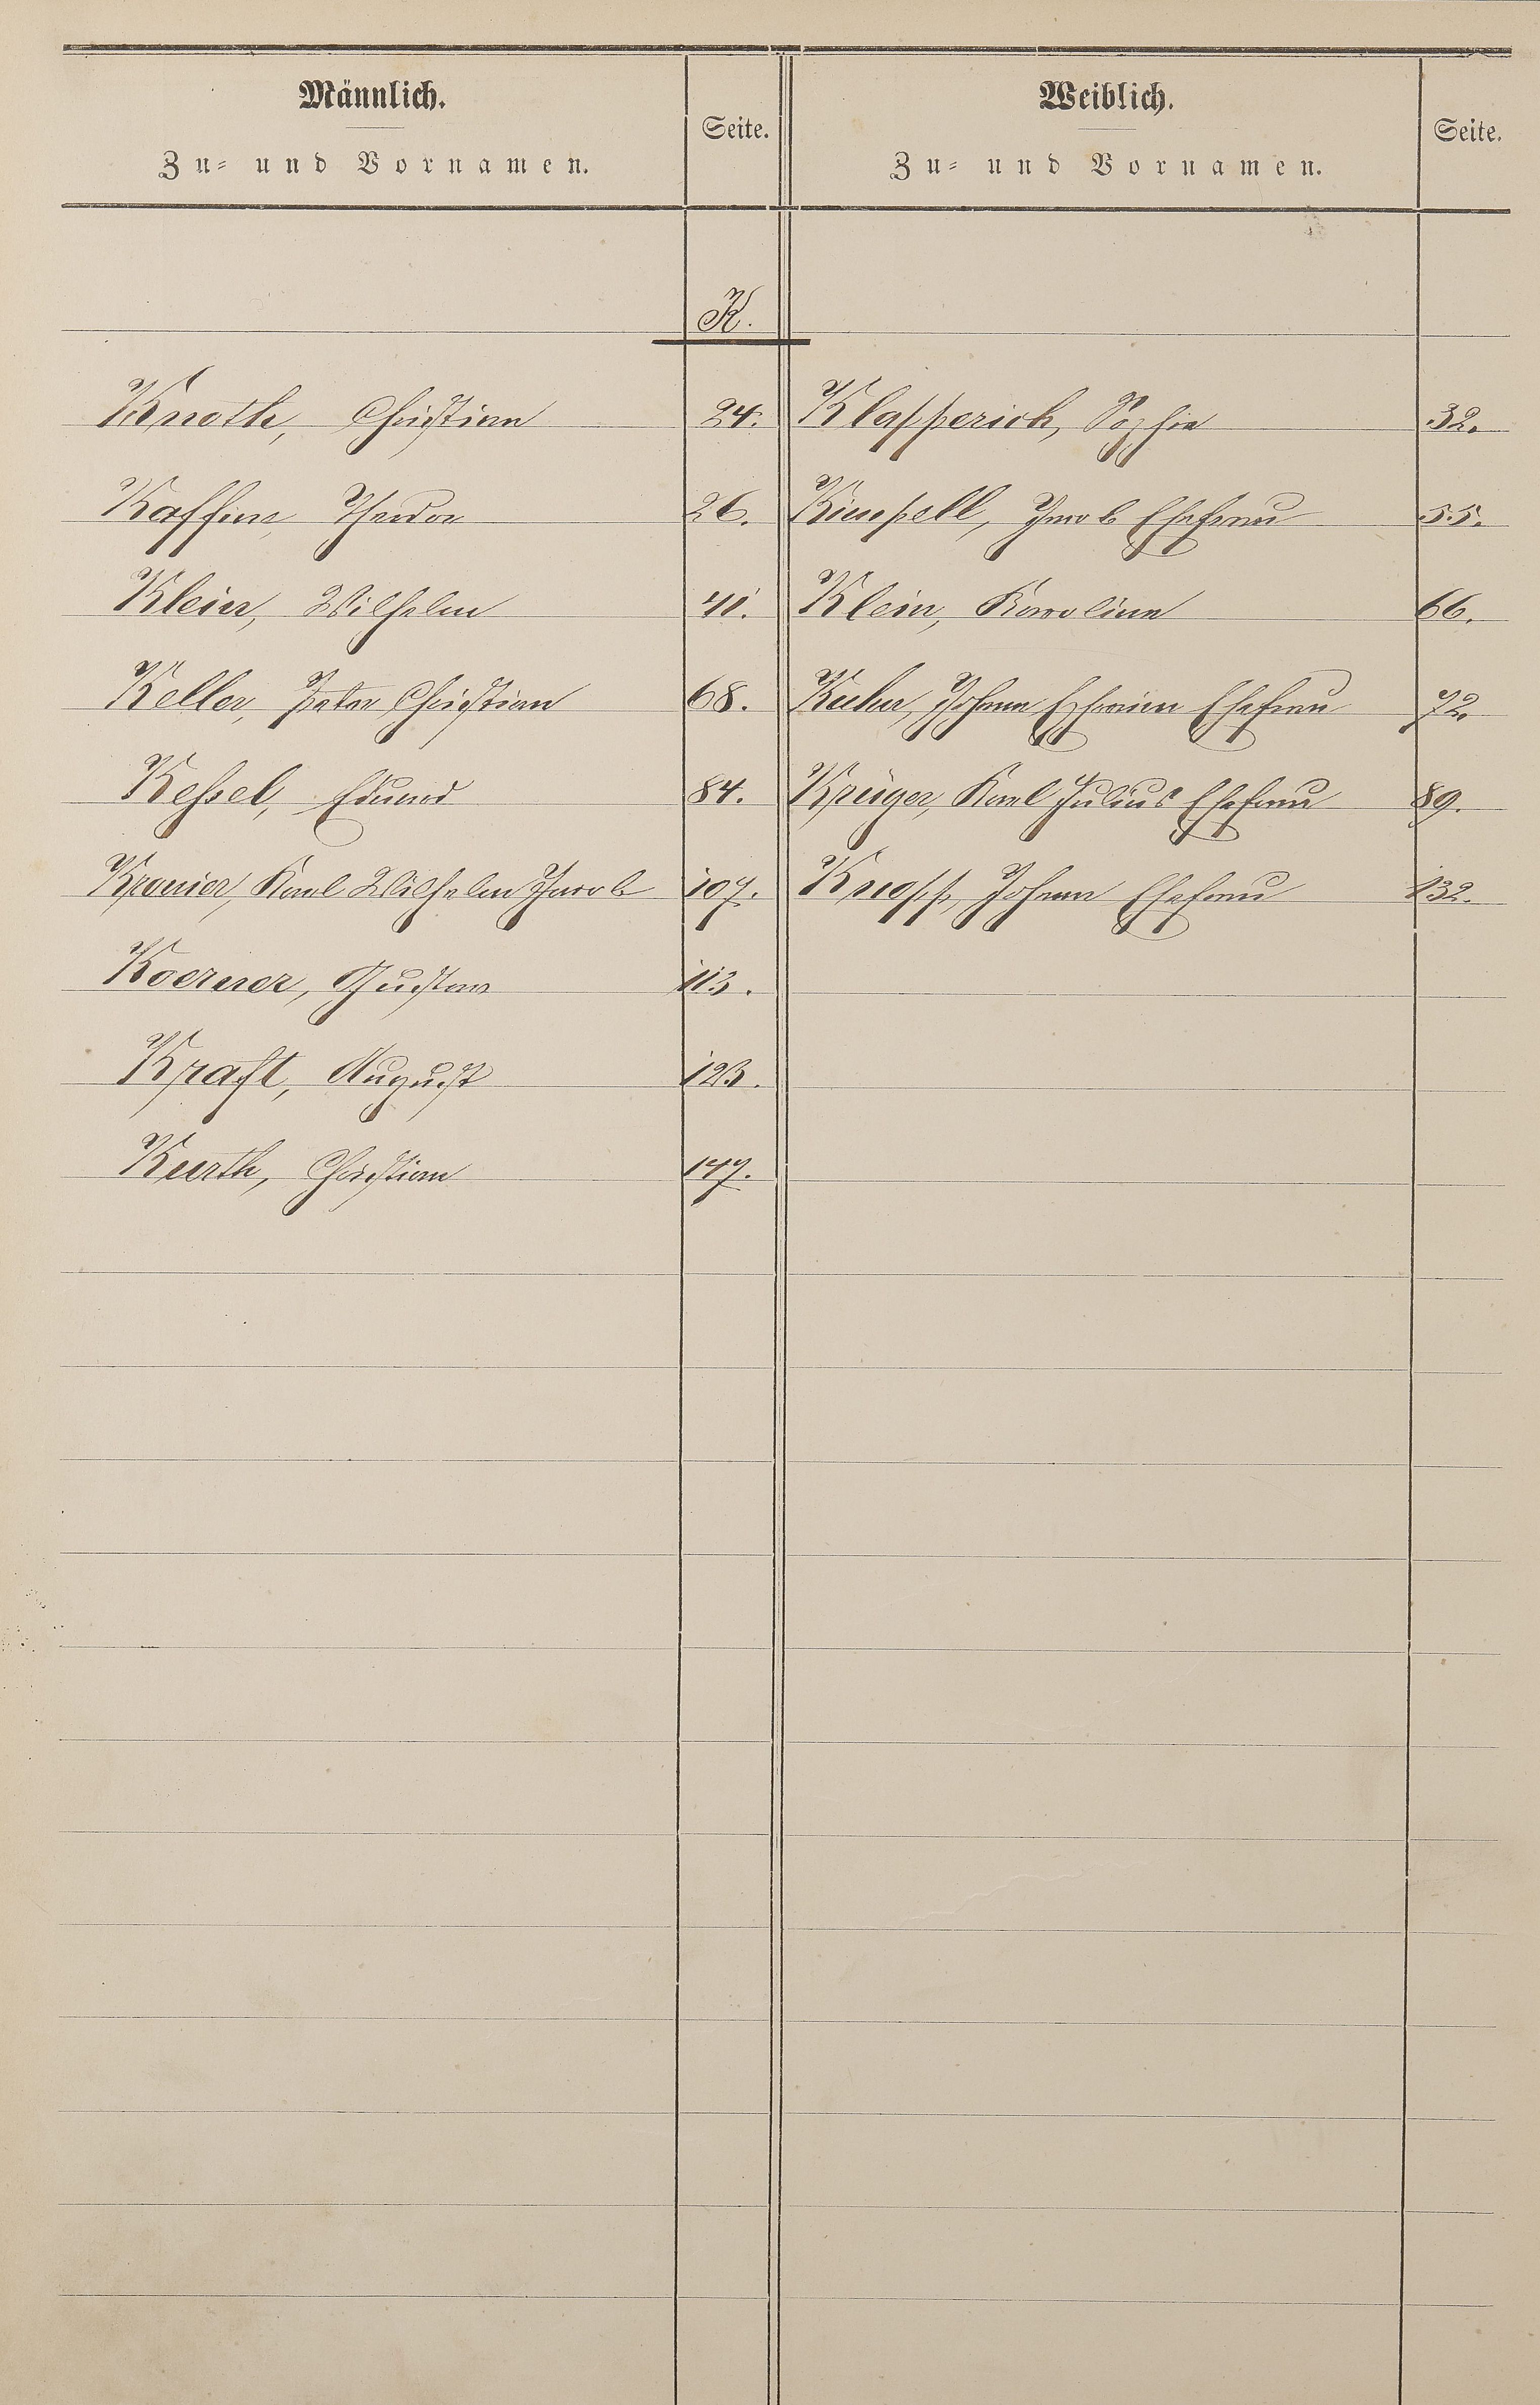 Männlich. Seite. Weiblich. Seite.
Zu- und Vornamen. Zu- und Vornamen.
K.
Knoth, Christian 24. Klapperich, Sophie 32.
Theodor 26. Jacob Ehefrau 55.
Klein, Wilhelm 41. Klein, Karoline 66.
Keller, Peter Christian 68. Kuhn, Johann Ehefrau 72.
Keßel, Eduard 84. Krüger, Karl Julius Ehefrau 89.
Karl Wilhelm Jacob 107. Knopp, Johann Ehefrau 132.
Koerner, Gustav 113.
Kraft, August 123.
Kurth, Christian 147.